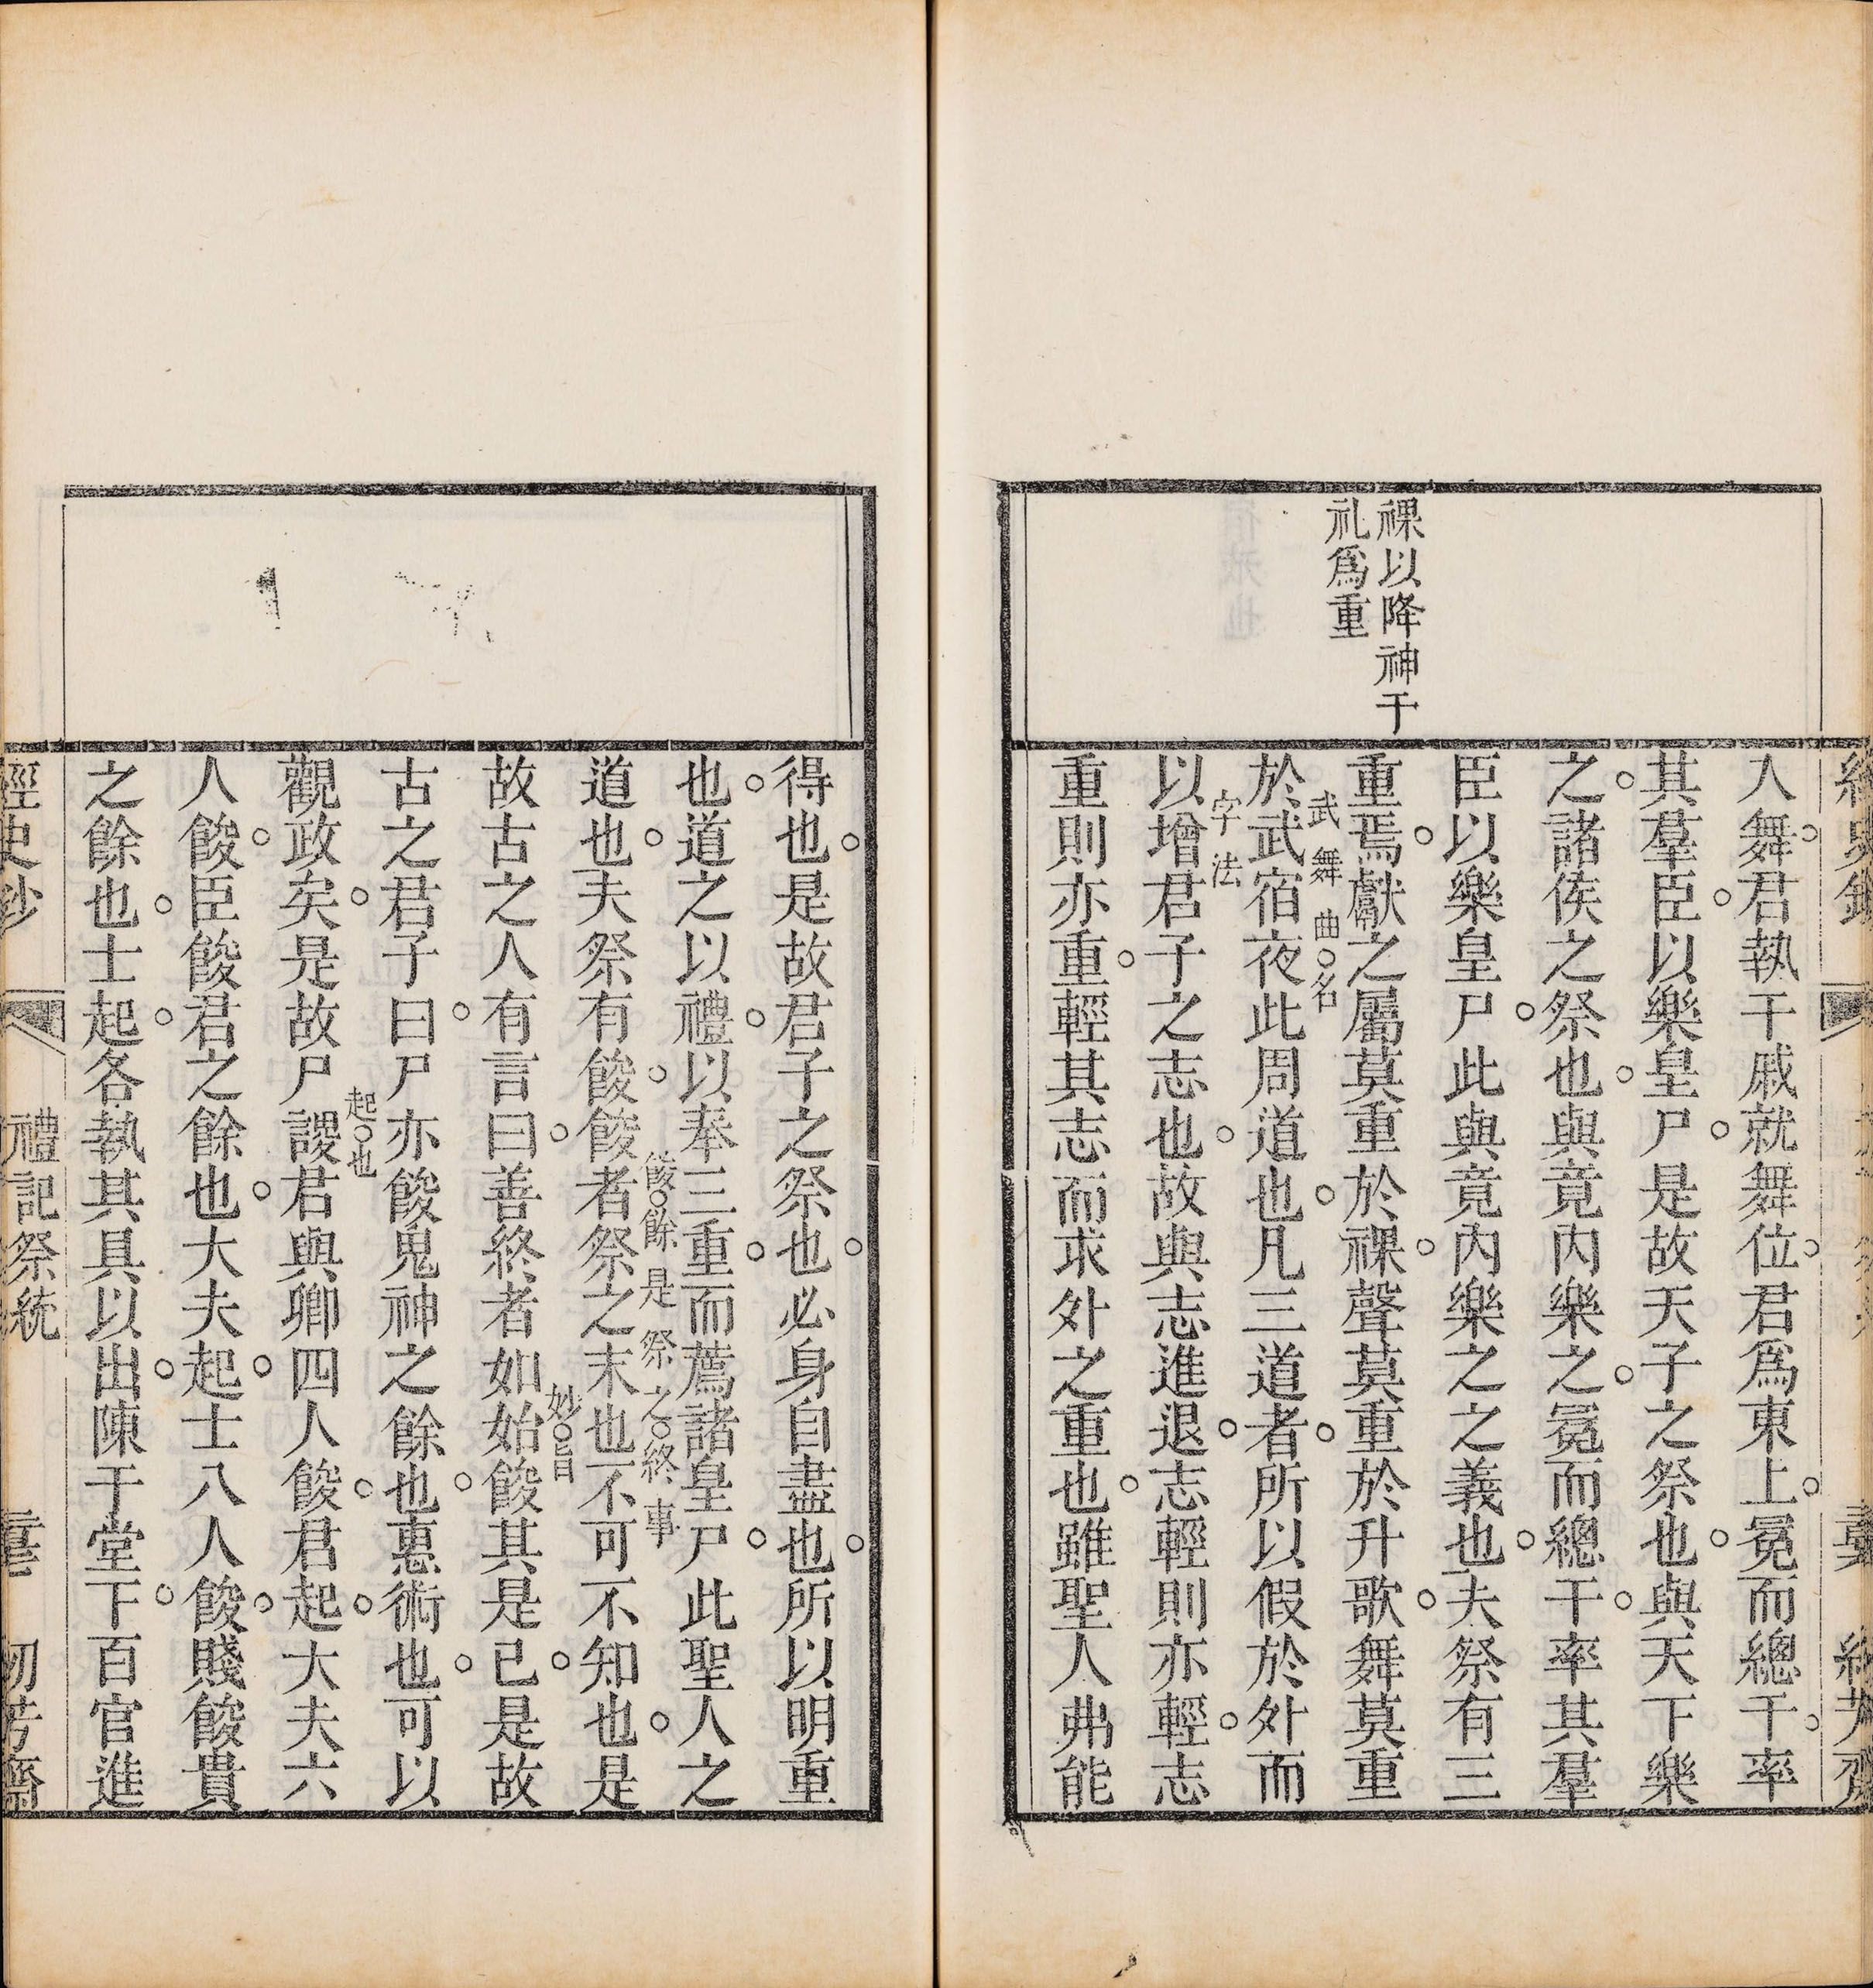 祼以降神于
礼爲重
入舞君執干戚就舞位君爲東上冕而總干率
其羣臣以樂皇尸是故天子之祭也與天下樂
之諸侯之祭也與竟內樂之冕而總干率其羣
臣以樂皇尸此與竟內樂之之義也夫祭有三
重焉獻之屬莫重於祼聲莫重於升歌舞莫重
武舞曲名
於武宿夜此周道也凡三道者所以假於外而
字法
以增君子之志也故與志進退志輕則亦輕志
重則亦重輕其志而求外之重也雖聖人弗能
得也是故君子之祭也必身自盡也所以明重
也道之以禮以奉三重而薦諸皇尸此聖人之
餕餘是祭之終事
道也夫祭有餕餕者祭之末也不可不知也是
妙旨
故古之人有言曰善終者如始餕其是已是故
古之君子曰尸亦餕鬼神之餘也惠術也可以
起也
觀政矣是故尸謖君與卿四人餕君起大夫六
人餕臣餕君之餘也大夫起士八人餕賤餕貴
之餘也士起各執其具以出陳于堂下百官進
經史鈔 禮記祭統